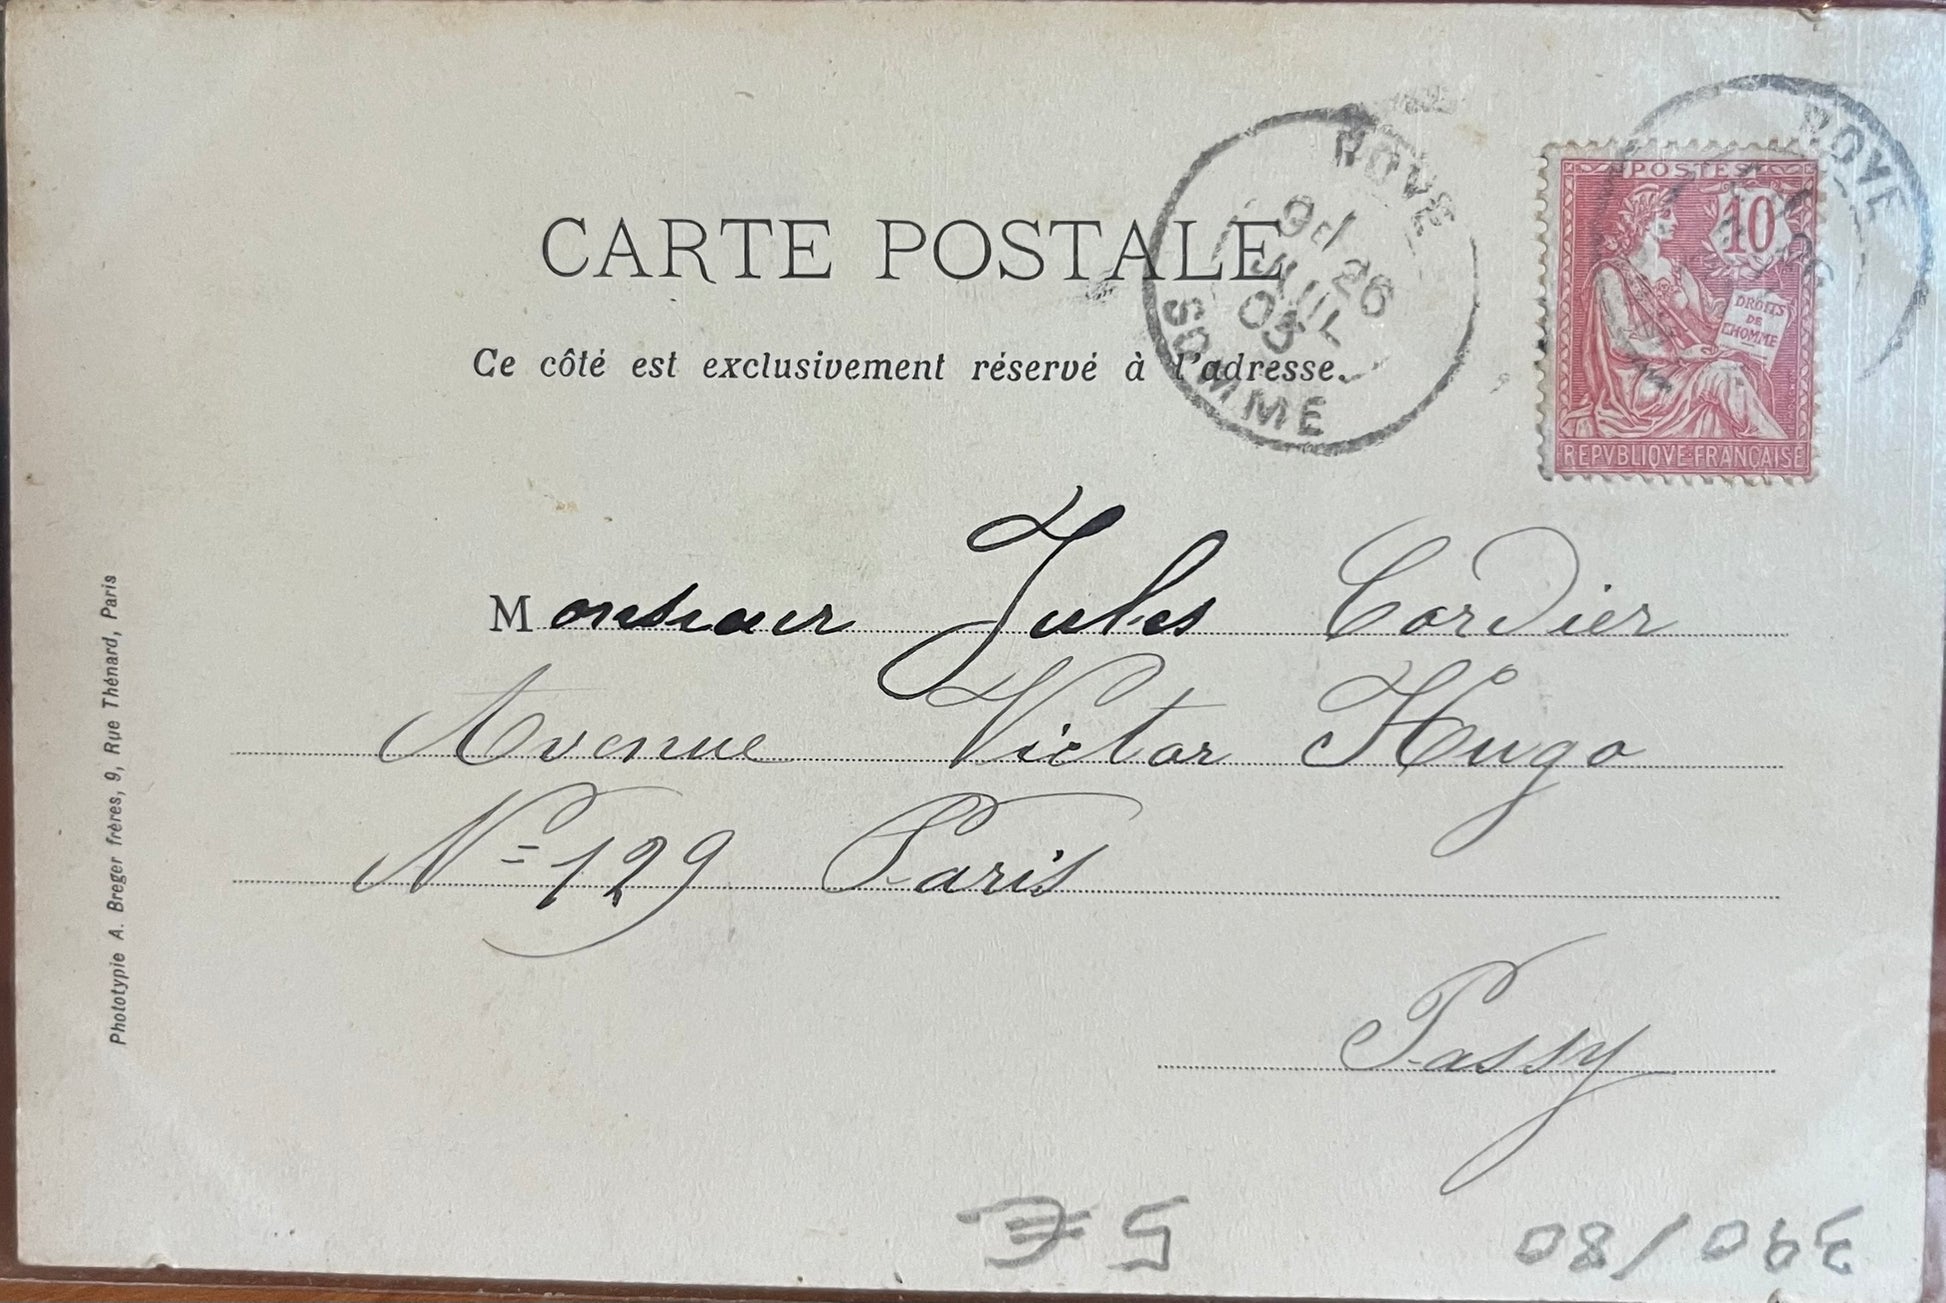 CARTE POSTALE
Ce côté est exclusivement réservé à l'adresse.
ROYE
9H
26
JUIL
03
SOMME
ROYE
POSTES
10
DROITS
DE
L'HOMME
REPVBLIQVE FRANÇAISE
Monsieur Jules Cordier
Avenue Victor Hugo
N= 129 Paris
Passy
Phototypie A. Breger frères, 9, Rue Thénard, Paris
5 €
390/80